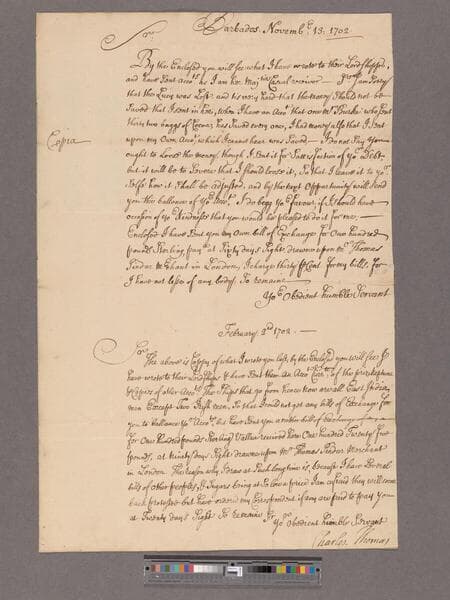 Barbados. Novembr. 13. 1702
Sir
By the Enclosed you will see what I have wrote to their Lordshipps,
and have sent Accots. as I am her Majties Casual receiver — I am sorry
that the Lucy was Lost and tis very hard that the money should not be
Saved that I sent in her, when I have an Accot. that one Mr. who sent
thirty two baggs of Cocoa, has Saved every one, I had money also that I Sent
upon my Own Accot. which I cannot hear was Saved — I do not Say you
Copia
ought to Loose the money, though I sent it for Satisfaction of yor. Debt
but it will be so Severe that I should loose it, So that I leave it to yor.
Selfe how it Shall be adjusted, and by the next Opportunity will Send
you the ballance of yor. Accot. I do begg yor. favour, if I should have
occasion of yor. Kindness that you would be pleased to do it for me, —
Enclosed I have Sent you my Own bill of Exchange for One hundred
pounds Sterling, at Sixty days Sight, drawn upon Mr. Thomas
Tindar Merchant in London, I charge thirty Cent. for my bills, for
I have not less of any body, So remaine
Yor. Obedient humble Servant
February 2d. 1702. —
Sir
The above is Coppy of what I wrote you last, by the Enclosed you will see I
have wrote to their Lordships & have Sent them an Accot. of the
& Copies of other Accots. The Ships that go from hence now are all East India
men Except Two So that I could not get any bills of Exchange for
you to ballance yor. Accot. but have Sent you another bill of
for One Hundred pounds Sterling Vallue received here One hundred Twenty five
pounds, at ninety days Sight drawn upon Mr. Thomas Tindar Merchant
in London. The reason why I draw at Such long time is, because I have Severall
bills of other peoples, & Sugars being at So Low a price I am afraid they will come
back protested but have ordered my Correspondent if any are paid to pay you
at Twenty days Sight So remaine Sr.
Yor. Obedient humble Servant
Charles Thomas